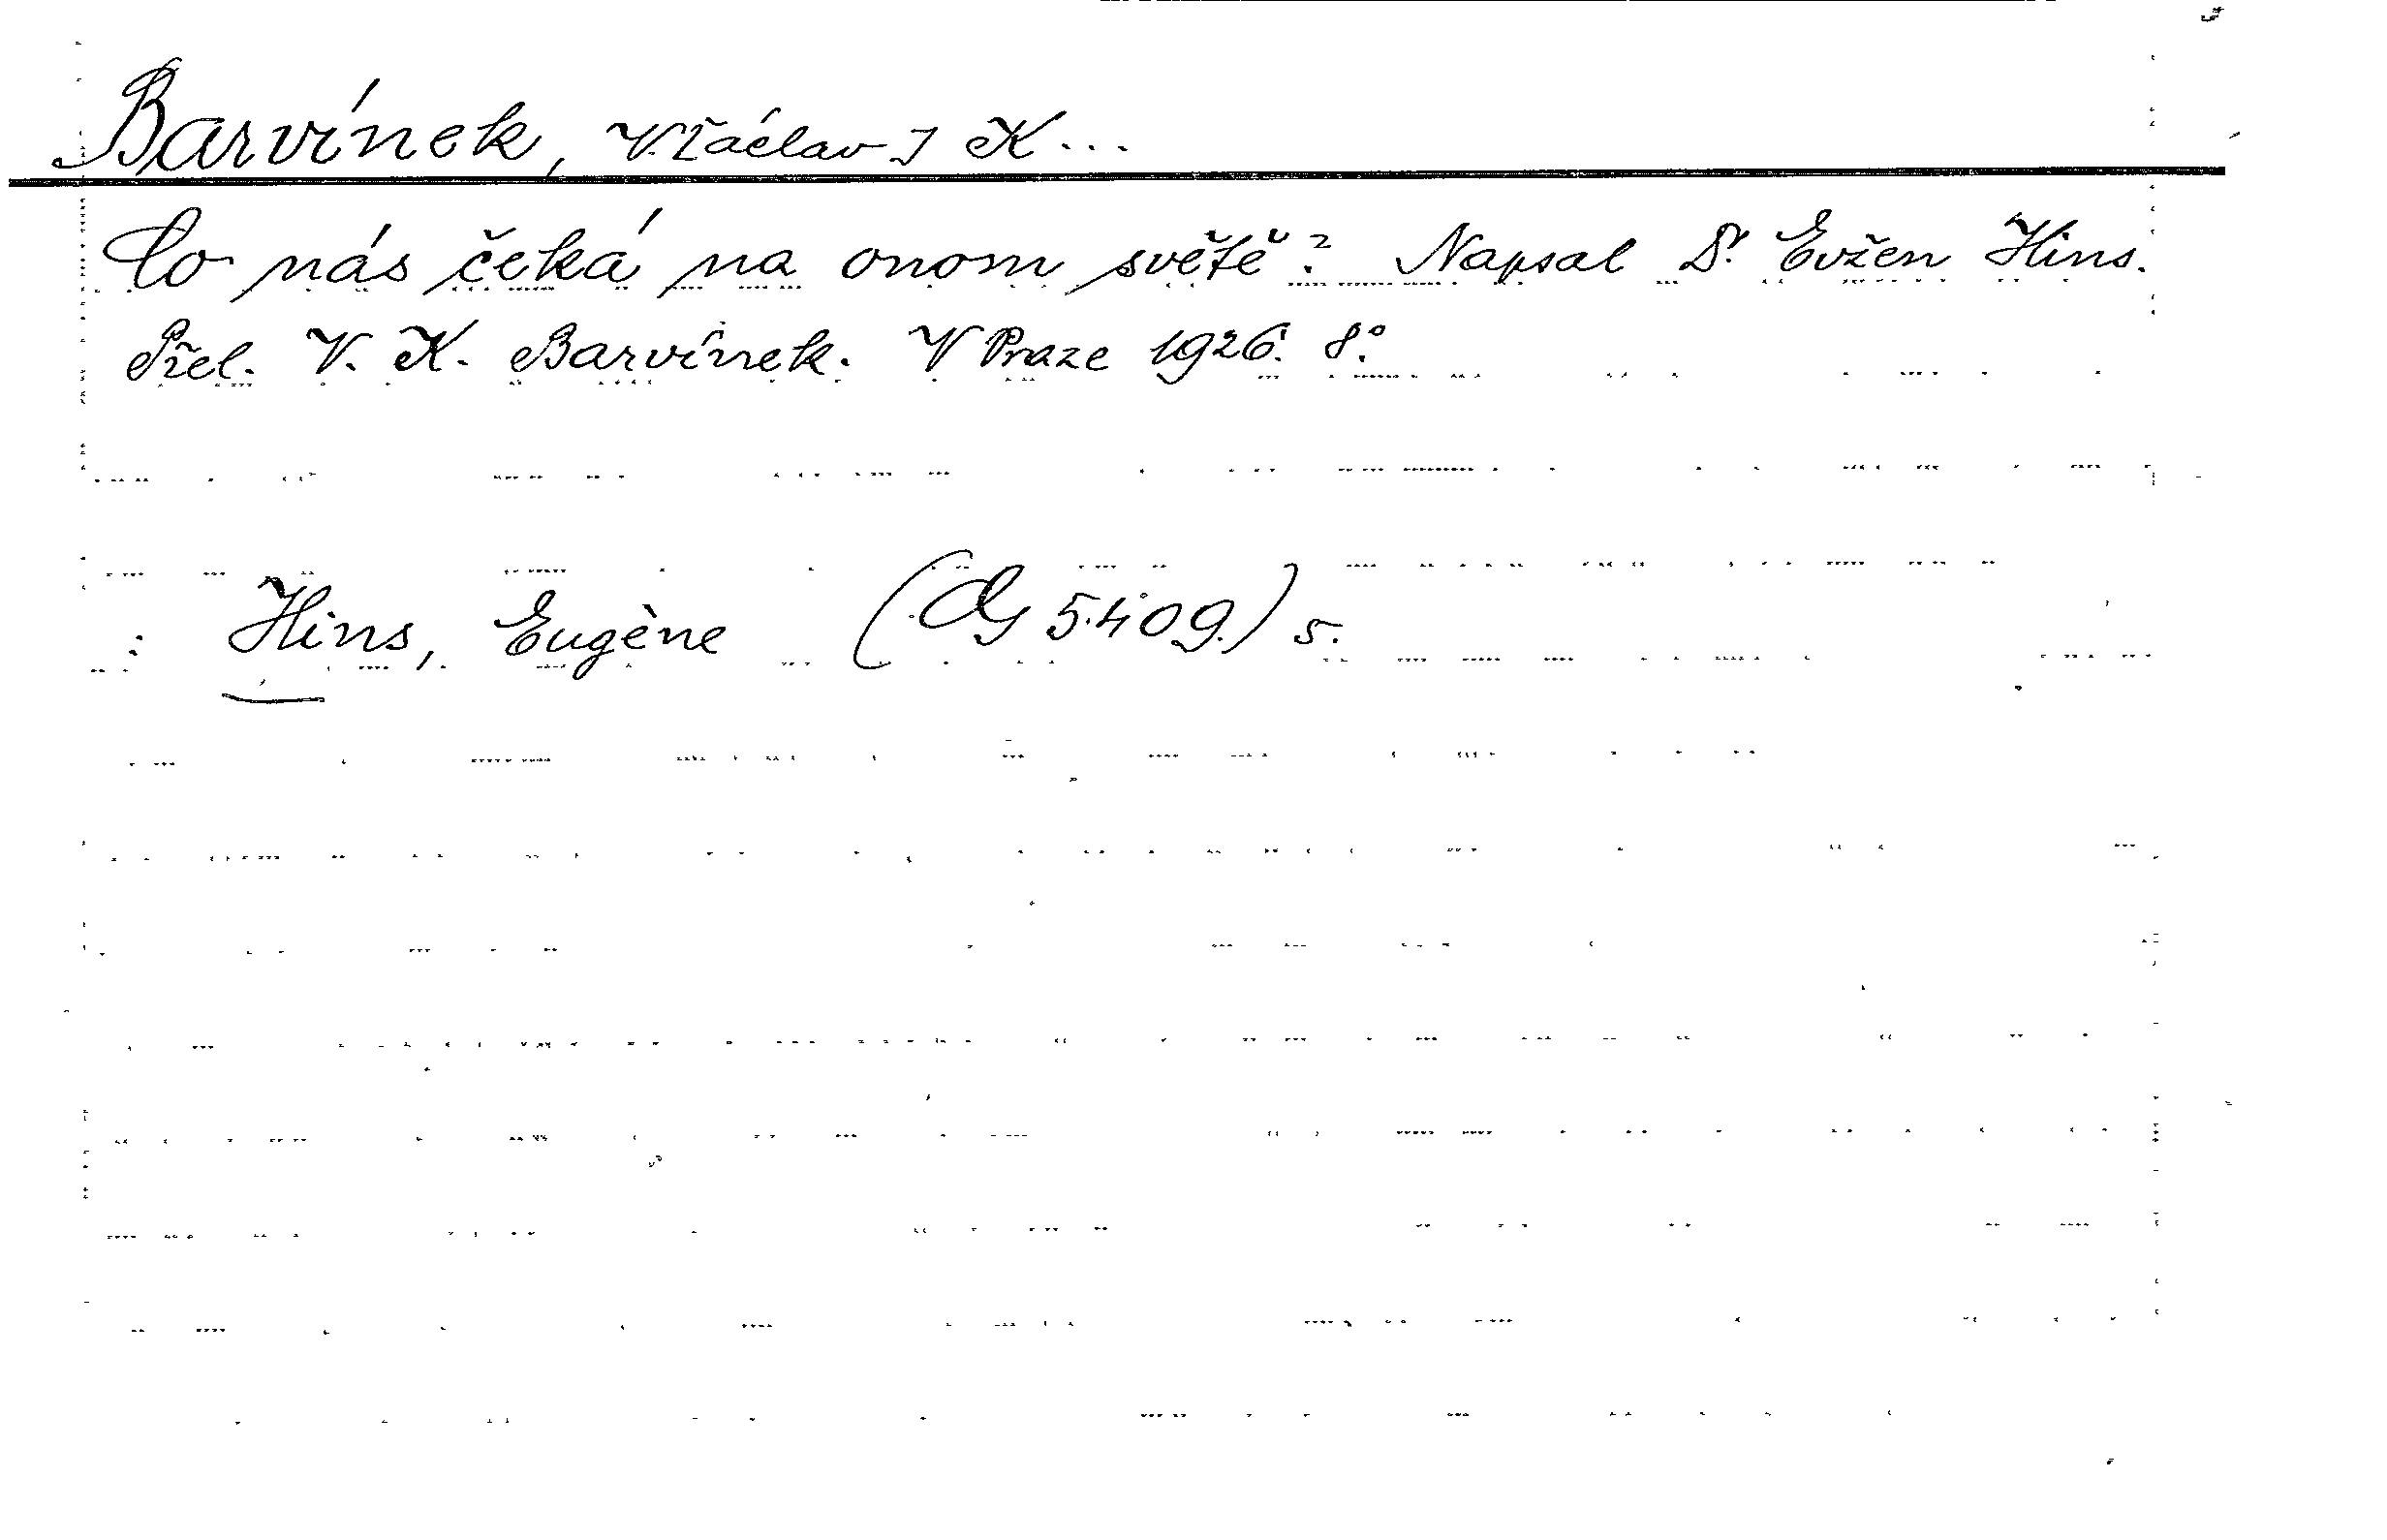 Barvínek, V.[áclav] K...
Co nás čeká na onom světě? Napsal Dr. Evžen Hins.
Přel. V. K. Barvínek. V Praze 1926. 8°.
: Hins, Eugène (5.409) s.